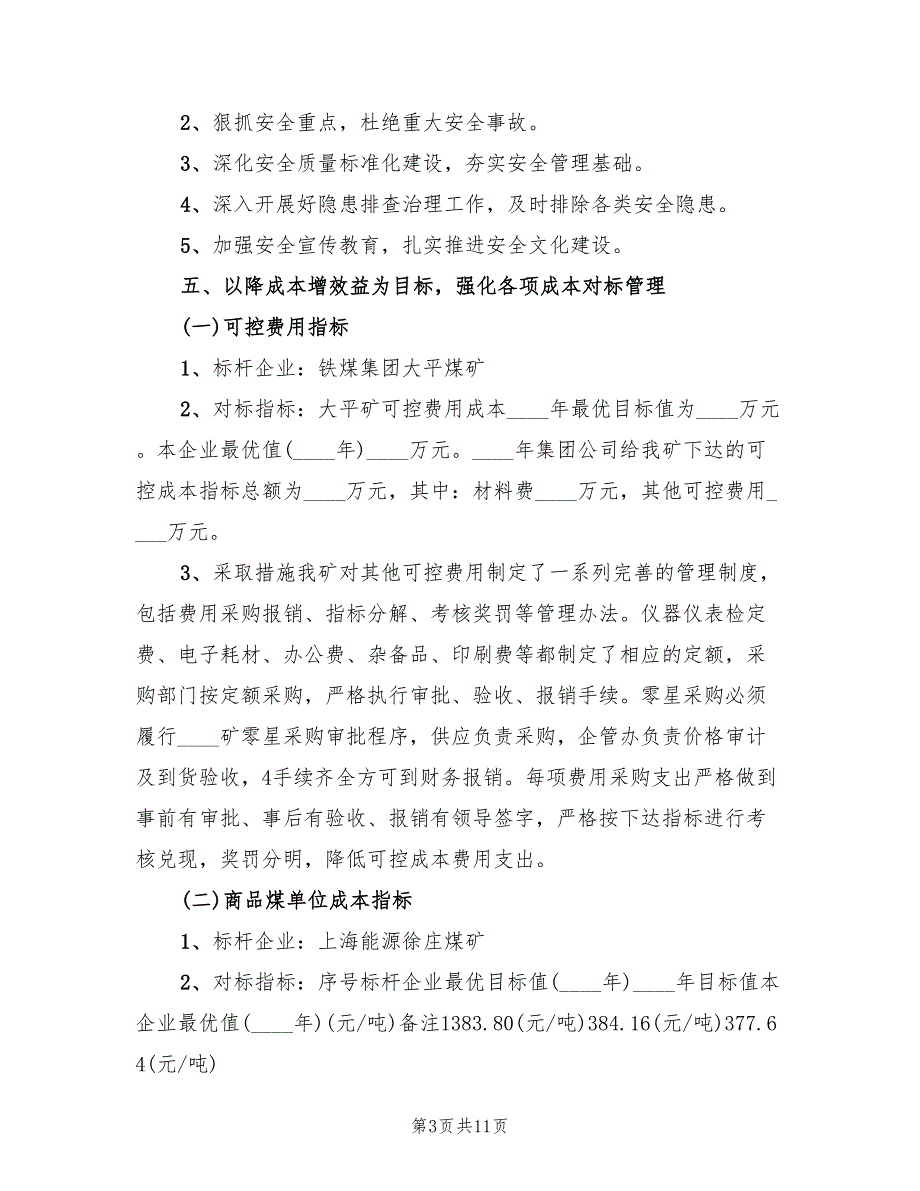 2、狠抓安全重点，杜绝重大安全事故。
3、深化安全质量标准化建设，夯实安全管理基础。
4、深入开展好隐患排查治理工作，及时排除各类安全隐患。
5、加强安全宣传教育，扎实推进安全文化建设。
五、以降成本增效益为目标，强化各项成本对标管理
(一)可控费用指标
1、标杆企业：铁煤集团大平煤矿
2、对标指标：大平矿可控费用成本____年最优目标值为____万元
。本企业最优值(____年)____万元。____年集团公司给我矿下达的可
控成本指标总额为____万元，其中：材料费____万元，其他可控费用_
___万元。
3、采取措施我矿对其他可控费用制定了一系列完善的管理制度，
包括费用采购报销、指标分解、考核奖罚等管理办法。仪器仪表检定
费、电子耗材、办公费、杂备品、印刷费等都制定了相应的定额，采
购部门按定额采购，严格执行审批、验收、报销手续。零星采购必须
履行____矿零星采购审批程序，供应负责采购，企管办负责价格审计
及到货验收，4手续齐全方可到财务报销。每项费用采购支出严格做到
事前有审批、事后有验收、报销有领导签字，严格按下达指标进行考
核兑现，奖罚分明，降低可控成本费用支出。
(二)商品煤单位成本指标
1、标杆企业：上海能源徐庄煤矿
2、对标指标：序号标杆企业最优目标值(____年)____年目标值本
企业最优值(____年)(元/吨)备注1383.80(元/吨)384.16(元/吨)377.6
4(元/吨)
第3页共11页